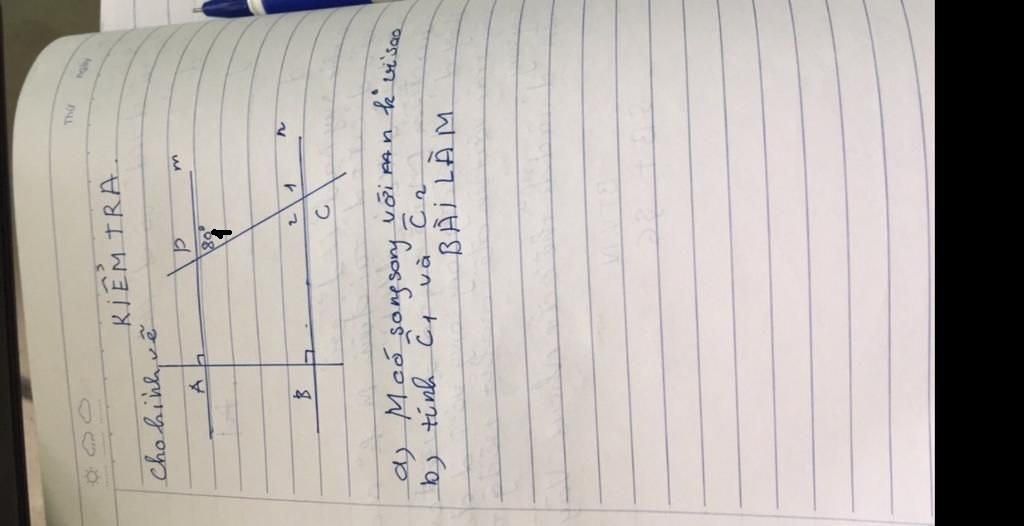 Thứ
ngày
KIỂM TRA
Cho hình vẽ
A
D
m
80°
1
B
2
1
n
C
a) M có song song với n k vì sao
b) tính C1 và C2
BÀI LÀM